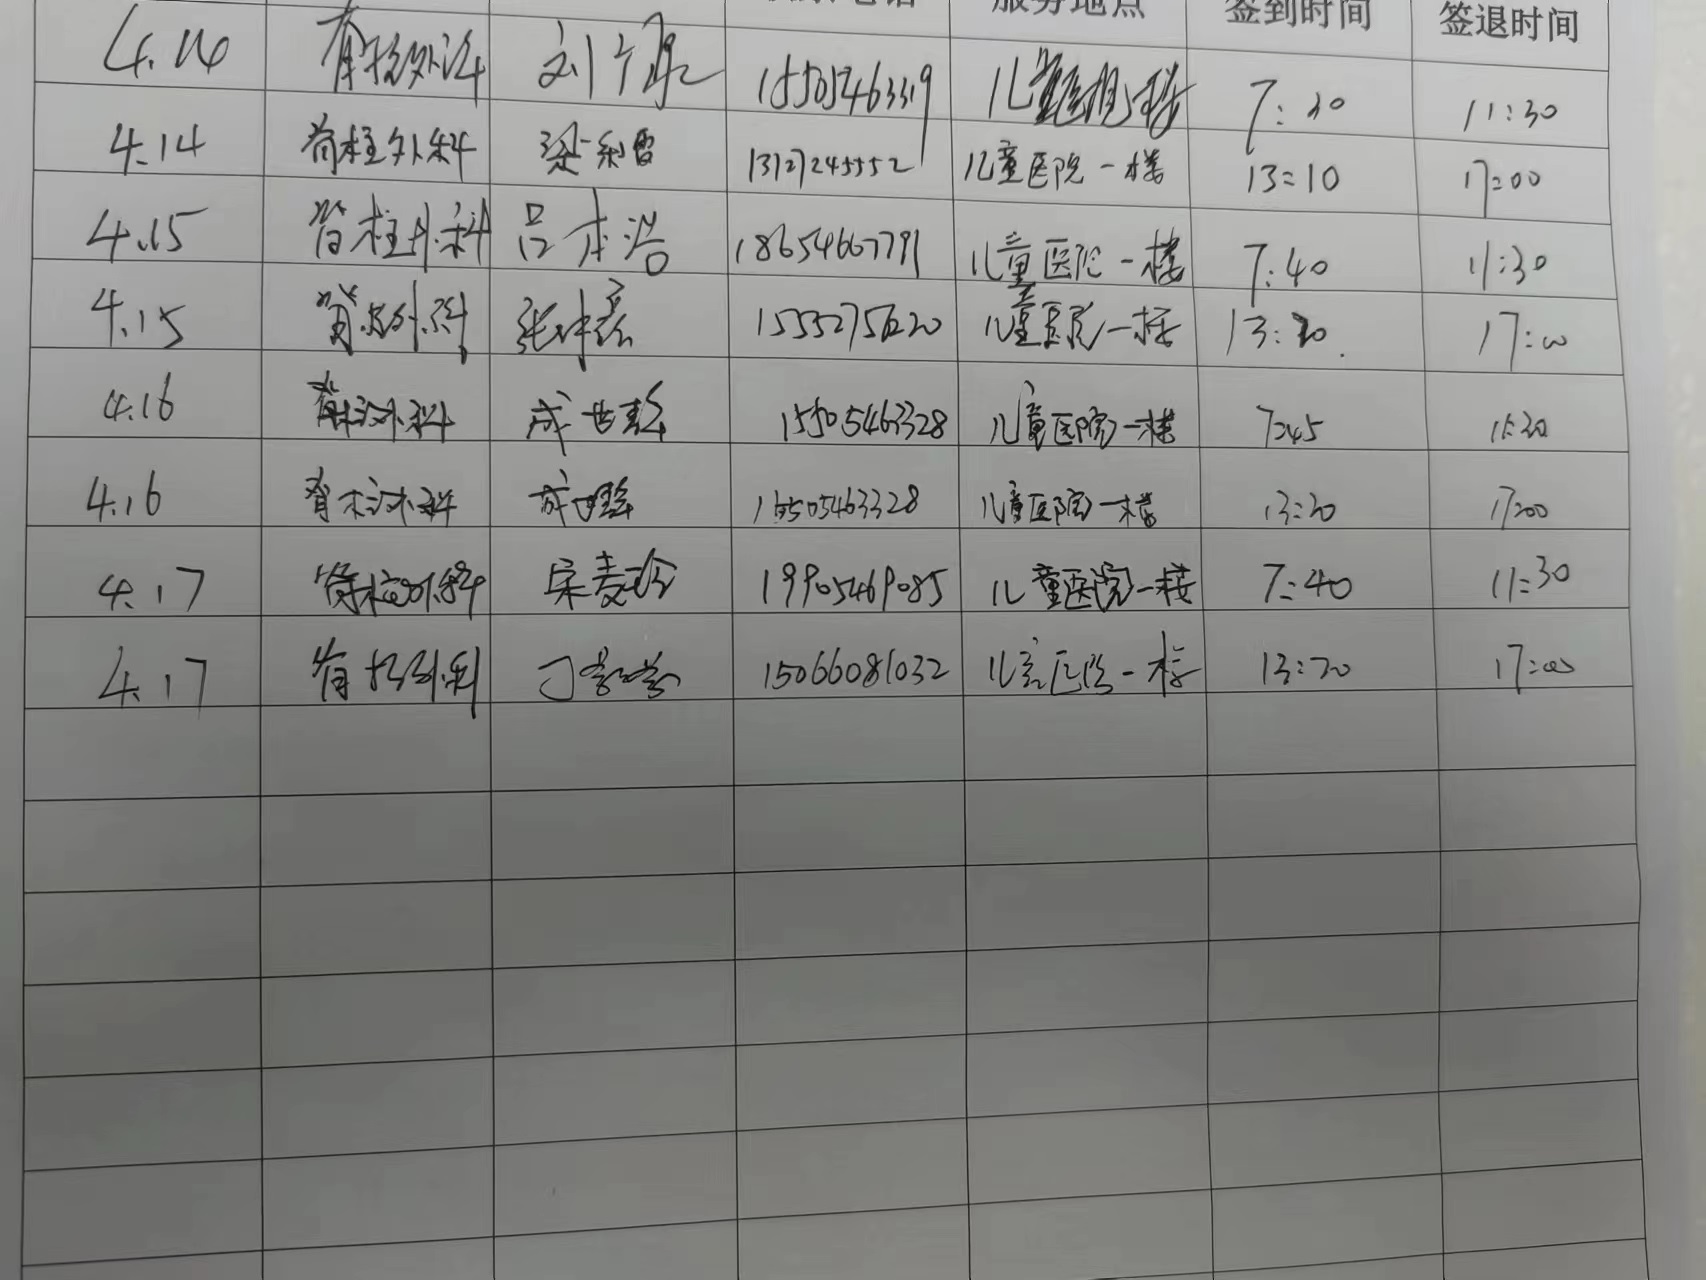 服务地点 签到时间 签退时间
4.14 脊柱外科 15505463319 儿童医院一楼 7:30 11:30
4.14 脊柱外科 13127245552 儿童医院一楼 13:10 17:00
4.15 脊柱外科 吕本浩 18654607791 儿童医院一楼 7:40 11:30
4.15 脊柱外科 儿童医院一楼 13:30 17:00
4.16 脊柱外科 15505463328 儿童医院一楼 7:45 11:30
4.16 脊柱外科 15505463328 儿童医院一楼 13:30 17:00
4.17 脊柱外科 宋麦玲 19905469085 儿童医院一楼 7:40 11:30
4.17 脊柱外科 15066081032 儿童医院一楼 13:30 17:00